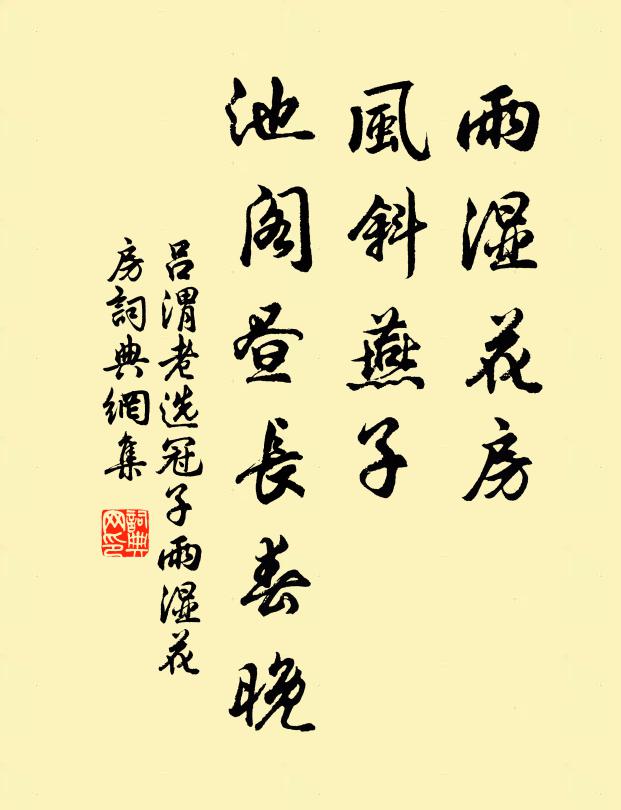 雨湿花房
風斜燕子
池阁昼長春晚
吕渭老选冠子雨湿花
房詞典網集
詞典
网印